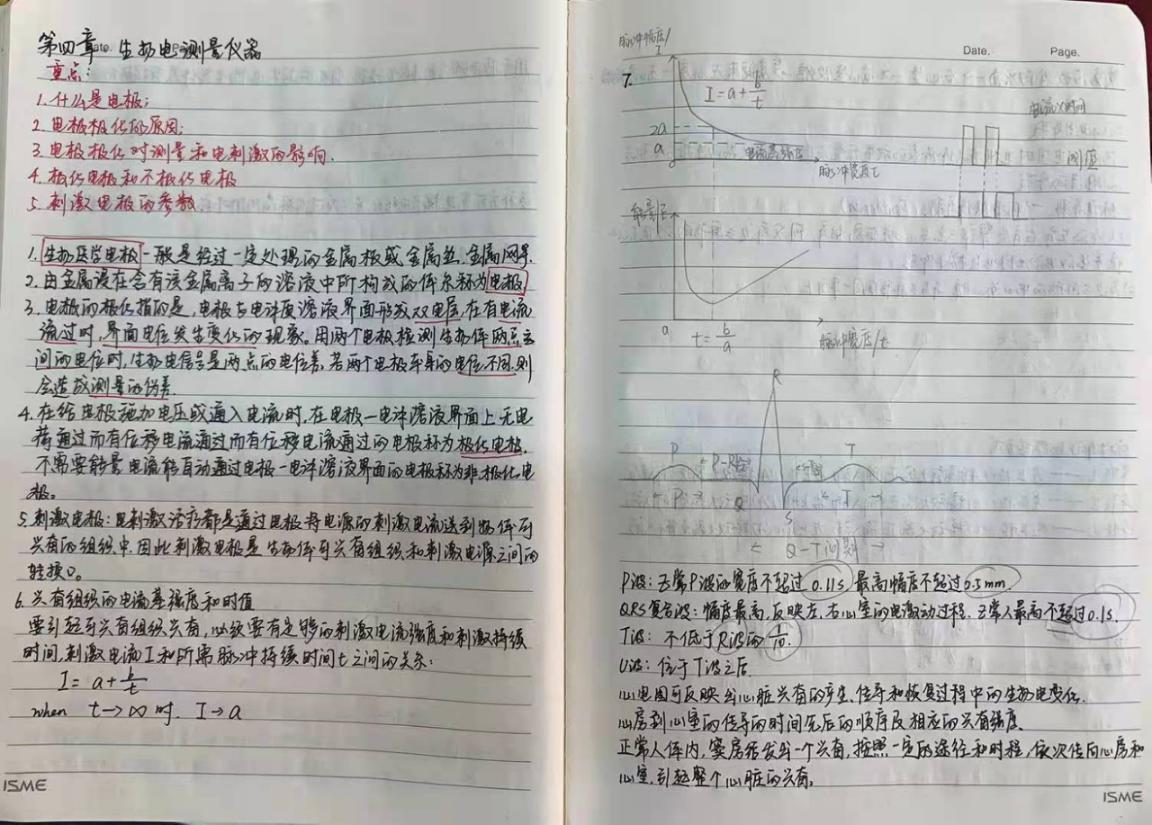 第四章 生物电测量仪器
重点:
1. 什么是电极;
2. 电极极化的原因;
3. 电极极化对测量和电刺激的影响.
4. 极化电极和不极化电极
5. 刺激电极的参数.
1. 生物医学电极一般是经过一定处理的金属板或金属丝、金属网等.
2. 由金属浸在含有该金属离子的溶液中所构成的体系称为电极
3. 电极的极化指的是, 电极与电评质溶液界面形成双电层, 在有电流
流过时, 界面电位发生变化的现象。用两个电极检测生物体两点之
间的电位时, 生物电信号是两点的电位差, 若两个电极本身的电位不同, 则
会造成测量的伪差.
4. 在给电极施加电压或通入电流时, 在电极一电评溶液界面上无电
荷通过而有位移电流通过而有位移电流通过的电极称为极化电极.
不需要能量电流能自动通过电极一电评溶液界面的电极称为非极化电
极。
5. 刺激电极: 电刺激治疗都是通过电极将电源的刺激电流送到物体可
兴奋的组织中. 因此刺激电极是生物体可兴奋组织和刺激电源之间的
转换口。
6. 兴奋组织的电流基强度和时值
要引起可兴奋组织兴奋, 必须要有足够的刺激电流强度和刺激持续
时间, 刺激电流I和所需脉冲持续时间t之间的关系:
I = a + b/t
when t→∞时. I→a
ISME
Date. Page.
脉冲幅度/I
7.
I = a + b/t
2a
a
0
电流基强度
脉冲宽度t
电流×时间
阈值
能量/E
0
t = b/a
脉冲宽度/t
R
P P-R段 T
P Q S T
Q-T间期
P波: 正常P波的宽度不超过0.11s, 最高幅度不超过0.5mm.
QRS复合波: 幅度最高, 反映左、右心室的电激动过程. 正常人最高不超过0.1s.
T波: 不低于R波的1/10.
U波: 位于T波之后.
心电图可反映出心脏兴奋的产生、传导和恢复过程中的生物电变化.
心房到心室的传导的时间先后的顺序及相应的兴奋强度.
正常人体内, 窦房结发出一个兴奋, 按照一定的途径和时程, 依次传向心房和
心室, 引起整个心脏的兴奋。
ISME